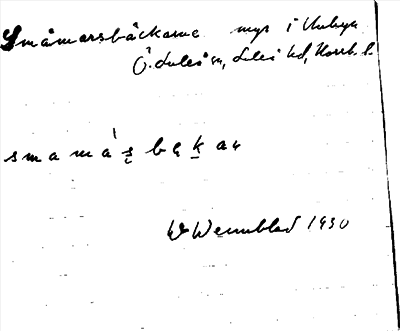 Småmorsbäckarne myr i Unbyn
Ö. Luleå sn, Luleå hd, Norrb. l.
smamáʂbękaɳ
W Wennblad 1930